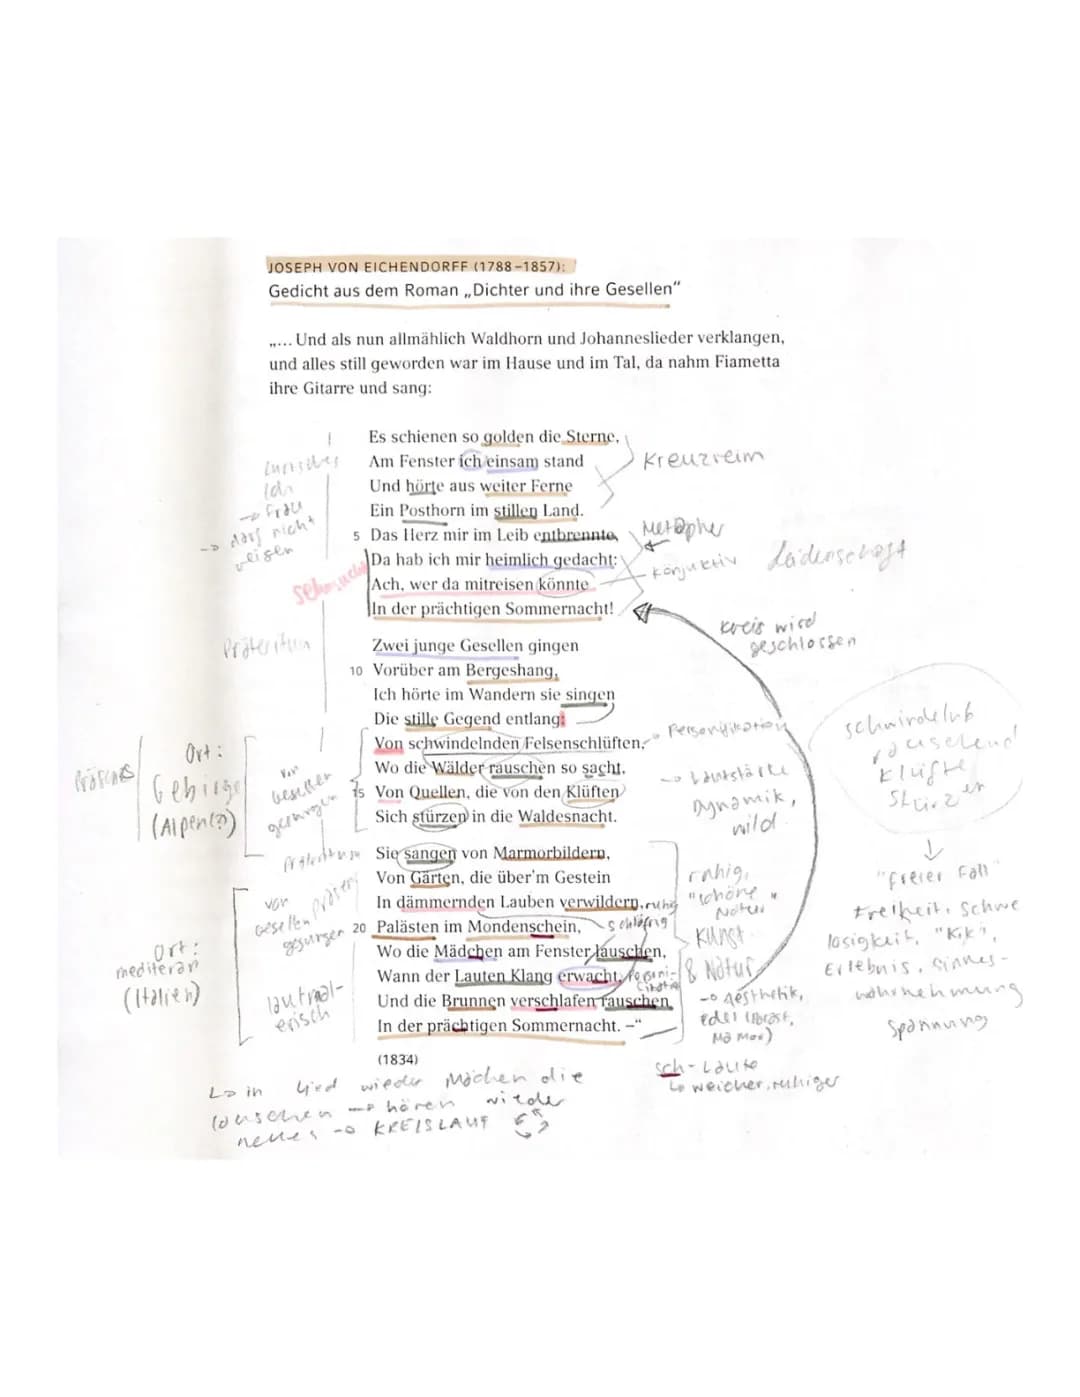 JOSEPH VON EICHENDORFF (1788–1857):
Gedicht aus dem Roman „Dichter und ihre Gesellen"
„... Und als nun allmählich Waldhorn und Johanneslieder verklangen,
und alles still geworden war im Hause und im Tal, da nahm Fiametta
ihre Gitarre und sang:
Es schienen so golden die Sterne,
Am Fenster ich einsam stand
Und hörte aus weiter Ferne
Ein Posthorn im stillen Land.
5 Das Herz mir im Leib entbrennte,
Da hab ich mir heimlich gedacht:
Ach, wer da mitreisen könnte
In der prächtigen Sommernacht!
Zwei junge Gesellen gingen
10 Vorüber am Bergeshang,
Ich hörte im Wandern sie singen
Die stille Gegend entlang:
Von schwindelnden Felsenschlüften,
Wo die Wälder rauschen so sacht,
15 Von Quellen, die von den Klüften
Sich stürzen in die Waldesnacht.
Sie sangen von Marmorbildern,
Von Gärten, die über'm Gestein
In dämmernden Lauben verwildern,
20 Palästen im Mondenschein,
Wo die Mädchen am Fenster lauschen,
Wann der Lauten Klang erwacht,
Und die Brunnen verschlafen rauschen
In der prächtigen Sommernacht. –"
(1834)
Lyrisches
Ich
→ Frau
→ darf nicht
reisen
Sehnsucht
Präteritum
Präsens
Ort:
Gebirge
(Alpen(?))
von
Gesellen
gesungen
Präteritum
von
Gesellen
gesungen
Präsens
Ort:
mediteran
(Italien)
lautmal-
erisch
Kreuzreim
Metapher
Konjuktiv
Leidenschaft
Kreis wird
geschlossen
Personifikation
→ Lautstärke
Dynamik,
wild
ruhig,
"schöne
Natur"
ruhig
schläfrig
Kunst
& Natur
→ Aesthetik,
edel
sch-Laute
↳ weicher, ruhiger
rauschend
Klüfte
Stürzen
↓
"freier Fall"
Freiheit, Schwe
losigkeit, "Kik",
Erlebnis, Sinnes-
wahrnehmung
Spannung
↳ in Lied wieder Mächen die
lauschen → hören wieder
neues → KREISLAUF